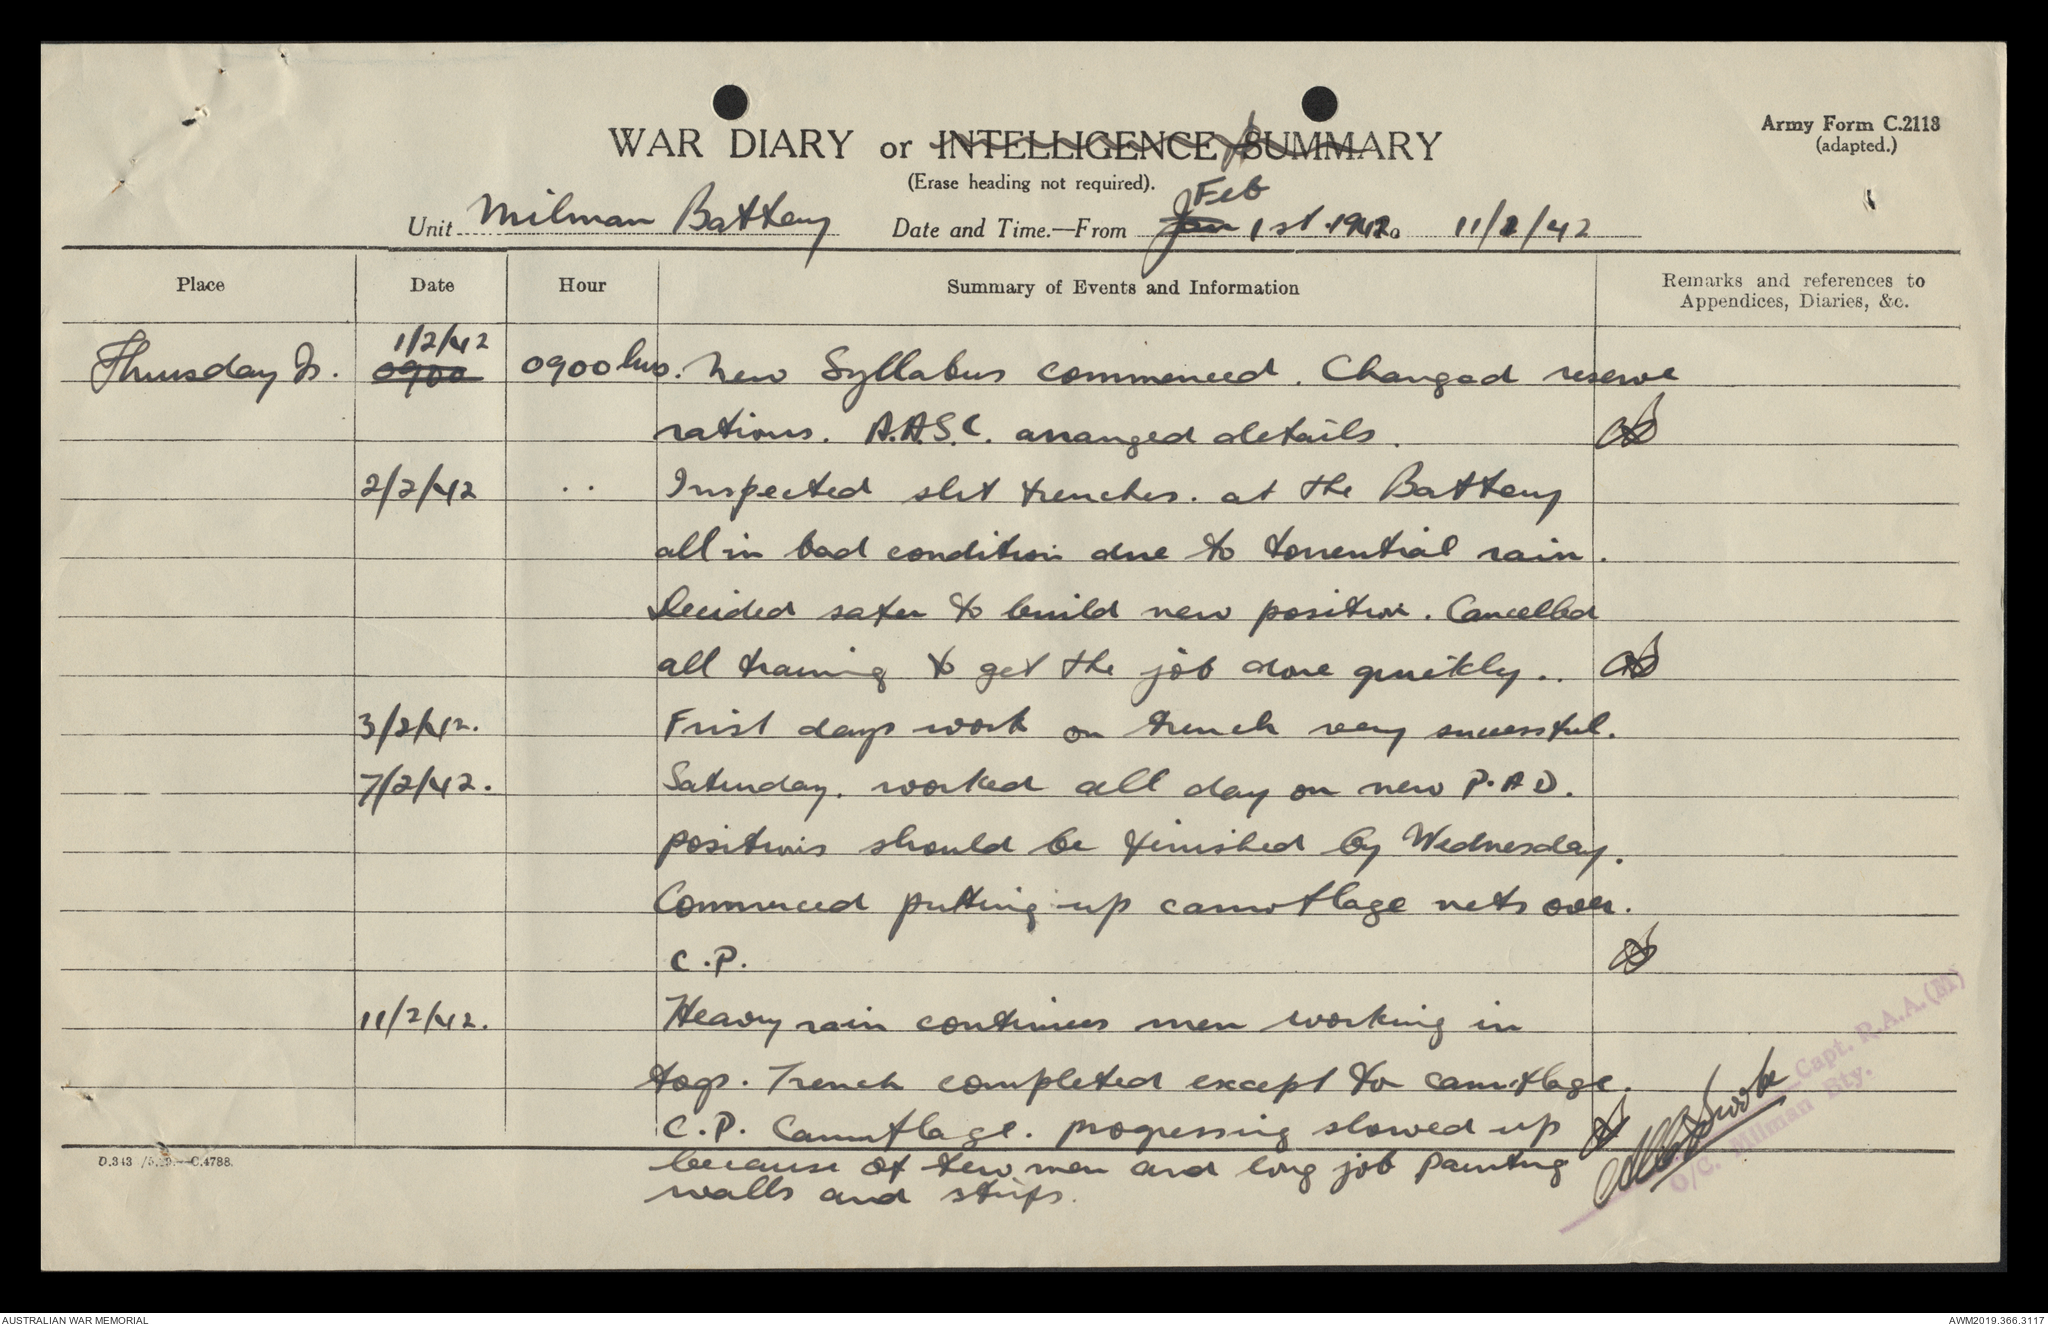 WAR DIARY or INTELLIGENCE SUMMARY
Army Form C.2118
(adapted.)
(Erase heading not required).
Unit Milman Battery Date and Time.—From Jan Feb 1st 1942. 11/2/42
Place Date Hour Summary of Events and Information Remarks and references to
Appendices, Diaries, &c.
Thursday Is. 0900 1/2/42 0900 hrs. New Syllabus commenced. Changed reserve
rations. A.A.S.C. arranged details.
2/2/42 .. Inspected slit trenches. at the Battery
all in bad condition due to torrential rain.
Decided safer to build new position. Cancelled
all training to get the job done quickly..
3/2/42. First days work on trench very successful.
7/2/42. Saturday. worked all day on new P.A.D.
positions should be finished by Wednesday.
Commenced putting up camouflage nets over.
C.P.
11/2/42. Heavy rain continues men working in
togs. Trench completed except for camouflage.
C.P. Camouflage. progressing slowed up
because of few men and long job painting
walls and strips.
Capt. R.A.A.
O/C. Milman Bty.
D.343 /5.39.—C.4788.
AUSTRALIAN WAR MEMORIAL
AWM2019.366.3117